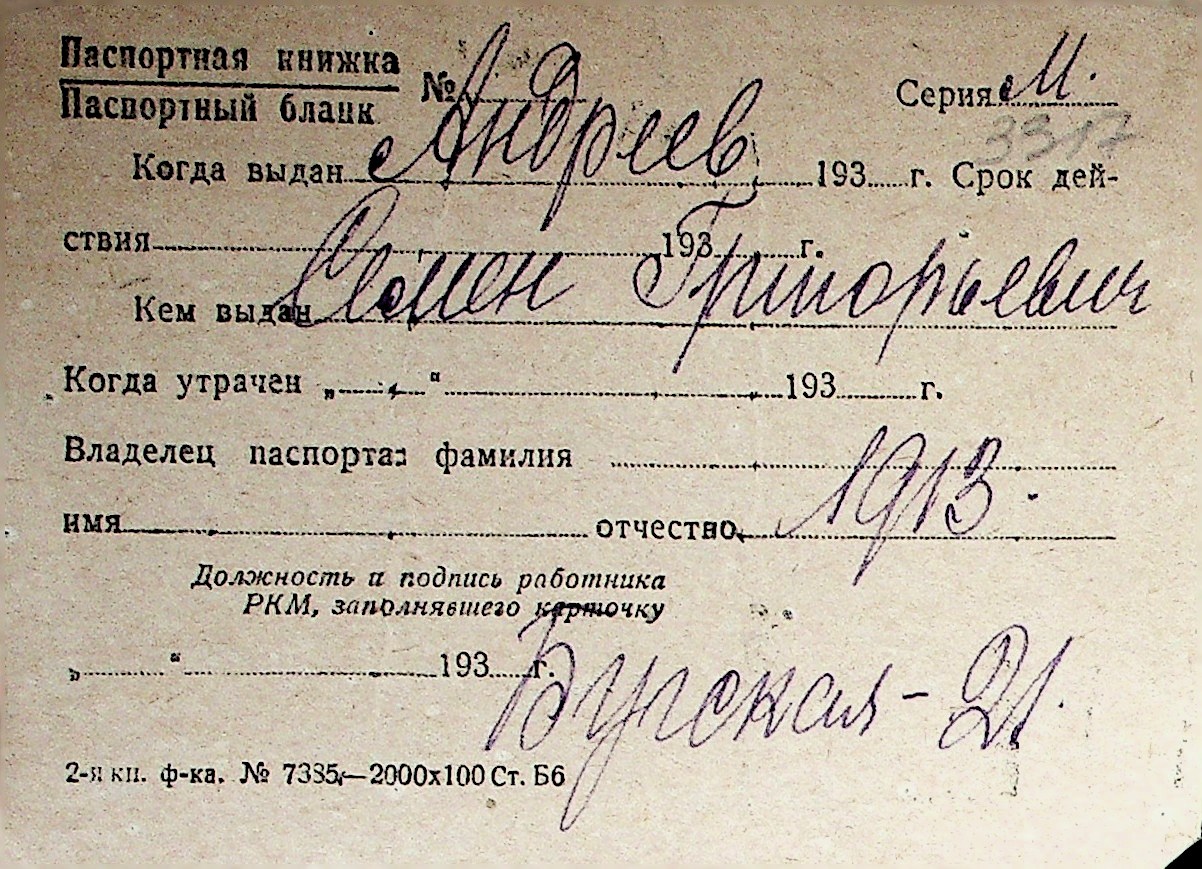 Паспортная книжка
Паспортный бланк
№
Серия М.
3317
Андреев
Когда выдан 193 г. Срок дей-
ствия 193 г.
Семен Григорьевич
Кем выдан
Когда утрачен „ “ 193 г.
Владелец паспорта: фамилия
имя отчество
1913.
Должность и подпись работника
РКМ, заполнявшего карточку
„ “ 193 г.
Бугская - 21.
2-я кн. ф-ка. № 7335—2000х100 Ст. Б6